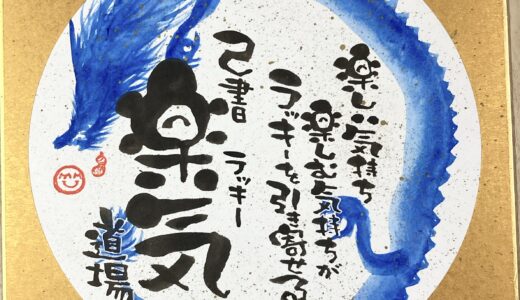 楽しい気持ち
楽しむ気持ちが
ラッキーを引き寄せる
己書
ラッキー
楽気
道場